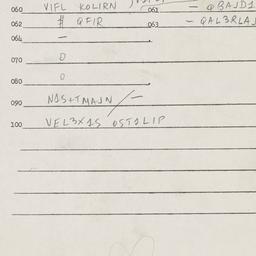 060 VIFL KOLIRN 061 - QBAJD1
062 # QFIR 063 - QAL3RLAJ
064 -
070 0
080 0
090 N1S+TMAJN / -
100 VEL3X1S OST1LIP